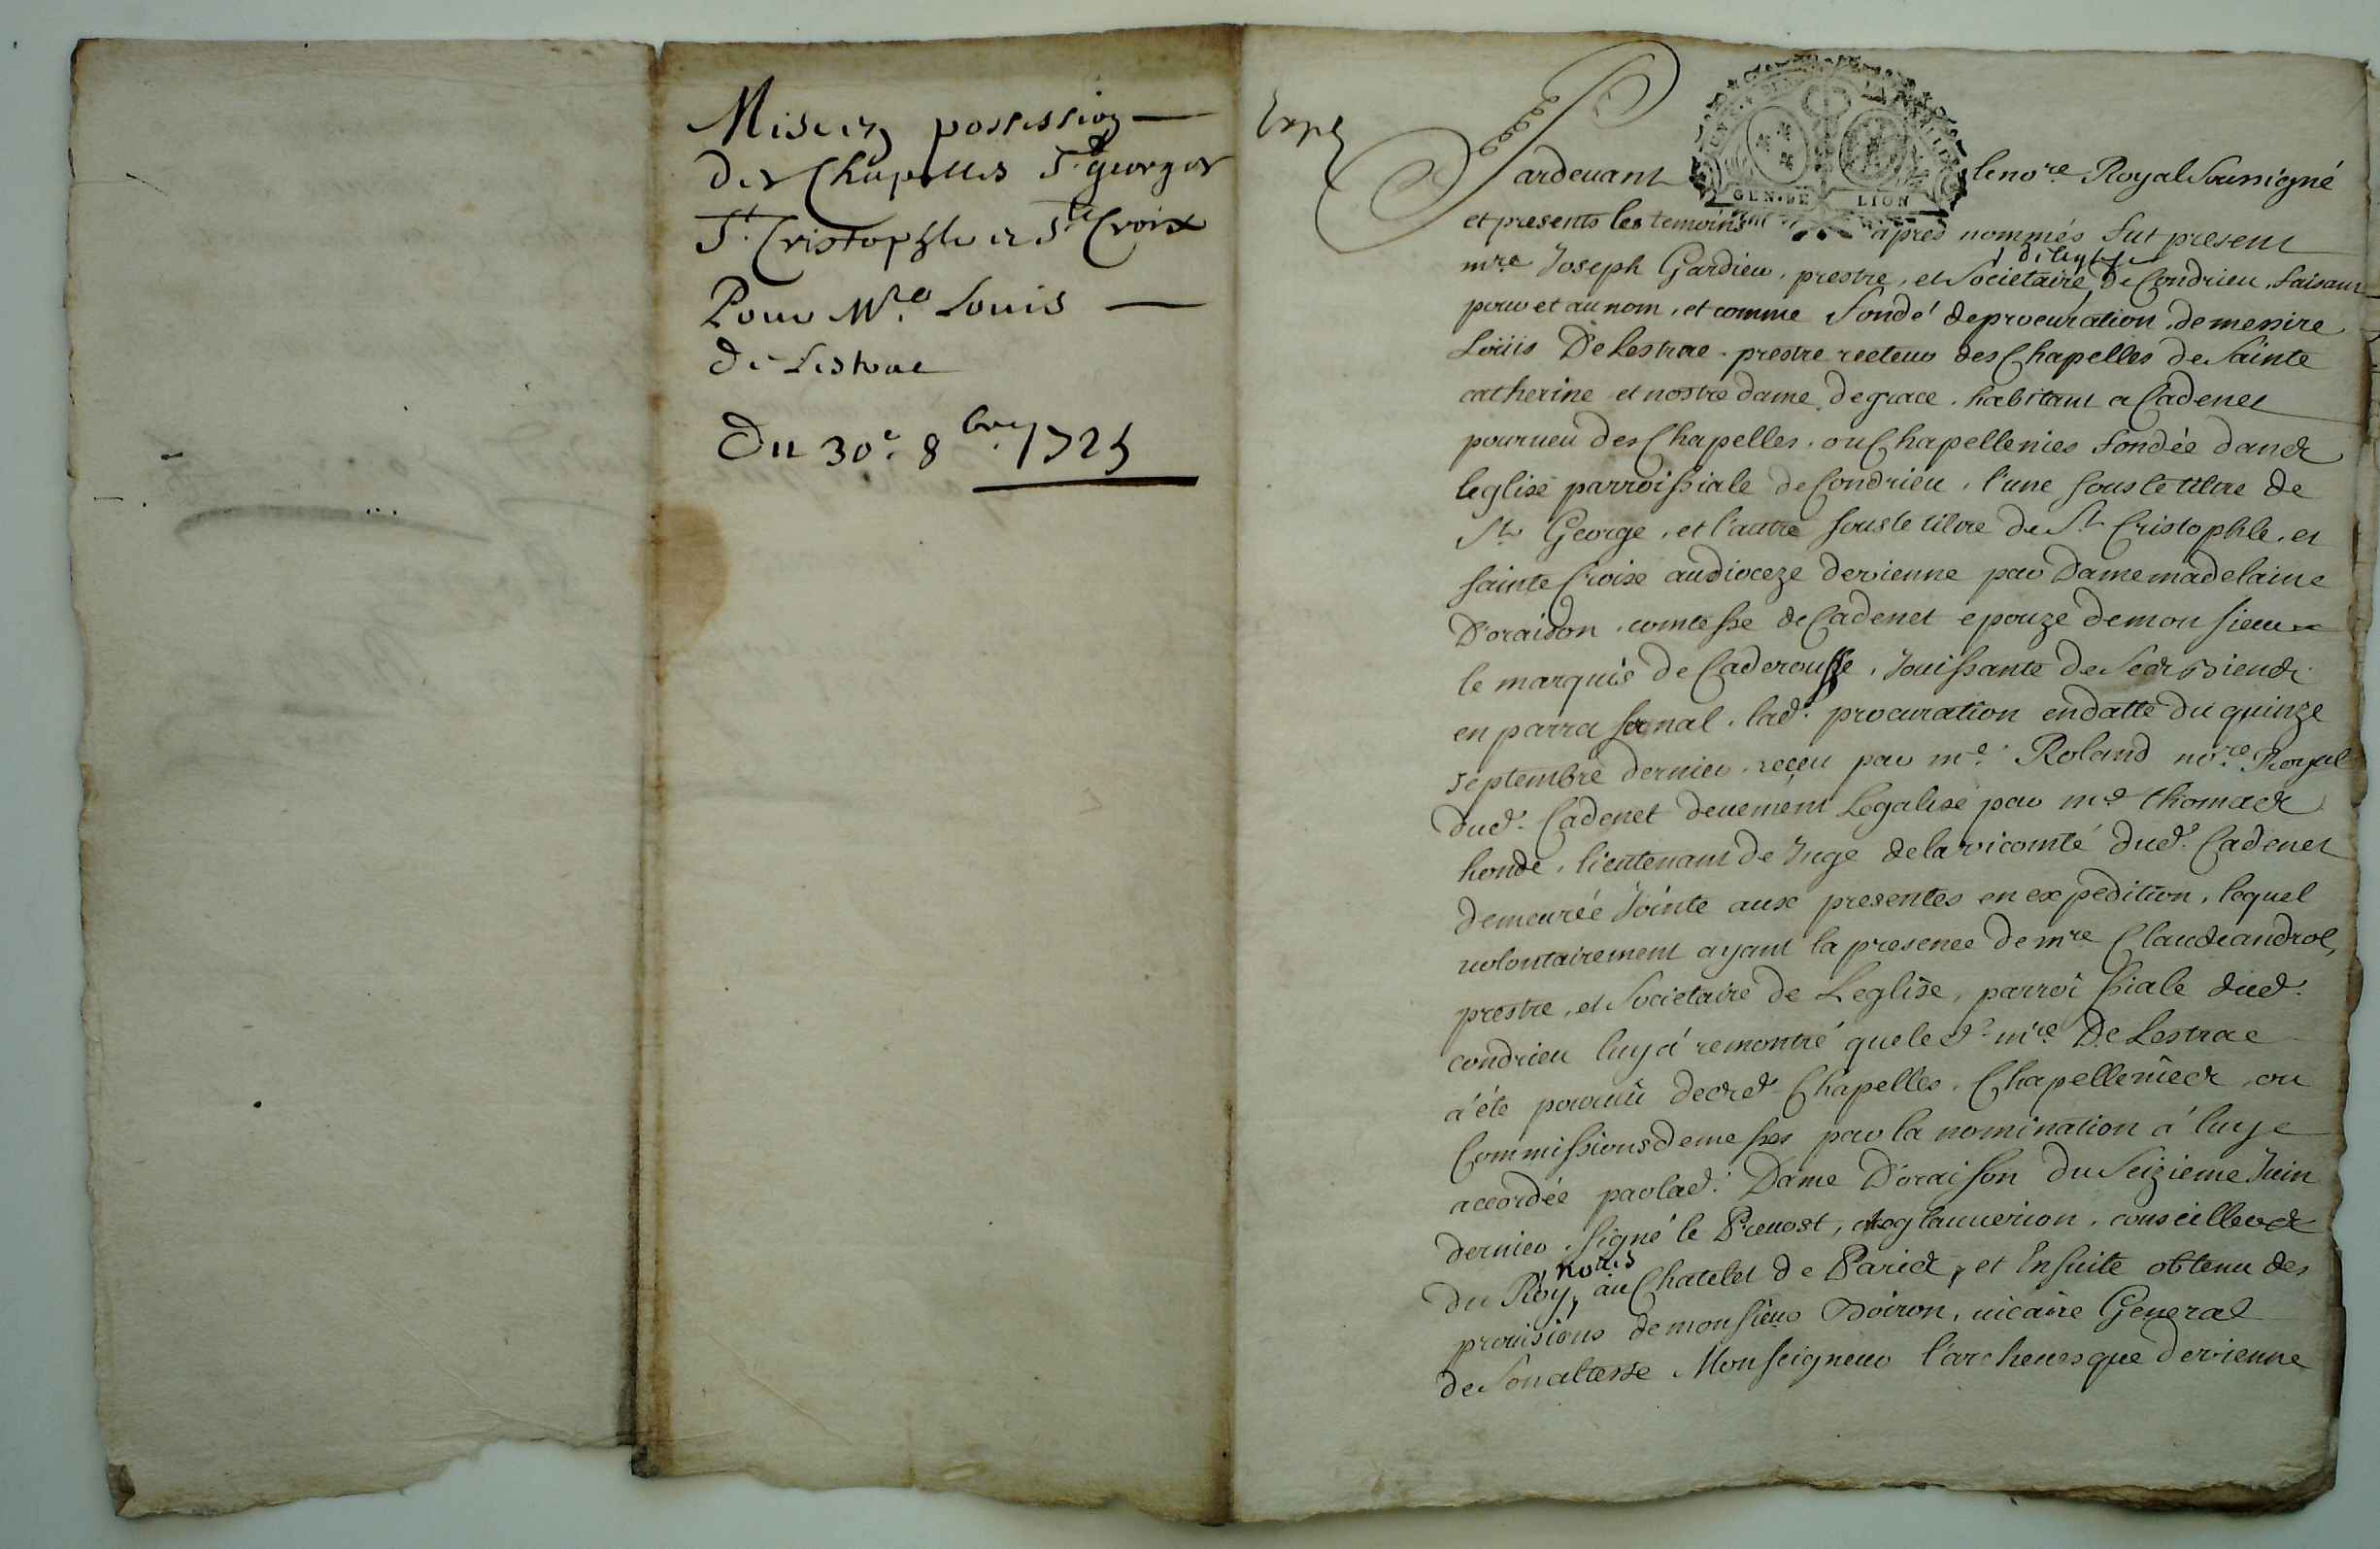 Mise en possession
des Chapelles St georges
St Cristophle et Ste Croix
Pour Mre Louis
de Lestrac
Du 30e 8bre 1725
Expé
Pardevant le nore Royal Soussigné
et presents les temoins apres nommés fut present
mre Joseph Gardieu, prestre, et Societaire de Condrieu, faisant
pour et au nom, et comme fondé de procuration de messire
Loüis De Lestrac prestre recteur des Chapelles de Sainte
catherine et nostre dame de grace, habitant a Cadenet
pourueu des Chapelles, ou Chapellenies fondée dans
leglise parroissiale de Condrieu, l'une sous le titre de
St George, et l'autre sous le titre de St Cristophle, et
sainte Croix au dioceze de vienne par Dame madelaine
D'oraison, comtesse de Cadenet epouze de monsieur
le marquis de Caderousse, Jouissante de Ses Biens
en parrafernal, lad. procuration en datte du quinze
septembre dernier, reçeu par me Roland nore Royal
dud. Cadenet deuëment Legalisé par me thomas
honde, lieutenant de Juge de la vicomté dud. Cadenet
demeurée Jointe aux presentes en expedition, lequel
volontairement ayant la presence de mre Claude androl,
prestre, et Societaire de Leglise, parroissiale dud.
condrieu luy à remontré que led. mre De Lestrac
à été pourvû desd. Chapelles, Chapellenies, ou
Commissions de messes par la nomination à luy
accordée par lad. Dame D'oraison du Seizieme Juin
dernier, signé le Preuost, et conseillers
nores
du Roy, au Chatelet de Paris, et Ensuite obtenu des
prouisions de monsieur Doiron, uicaire General
de Son altesse Monseigneur l'archeuesque de vienne
GEN. DE LION